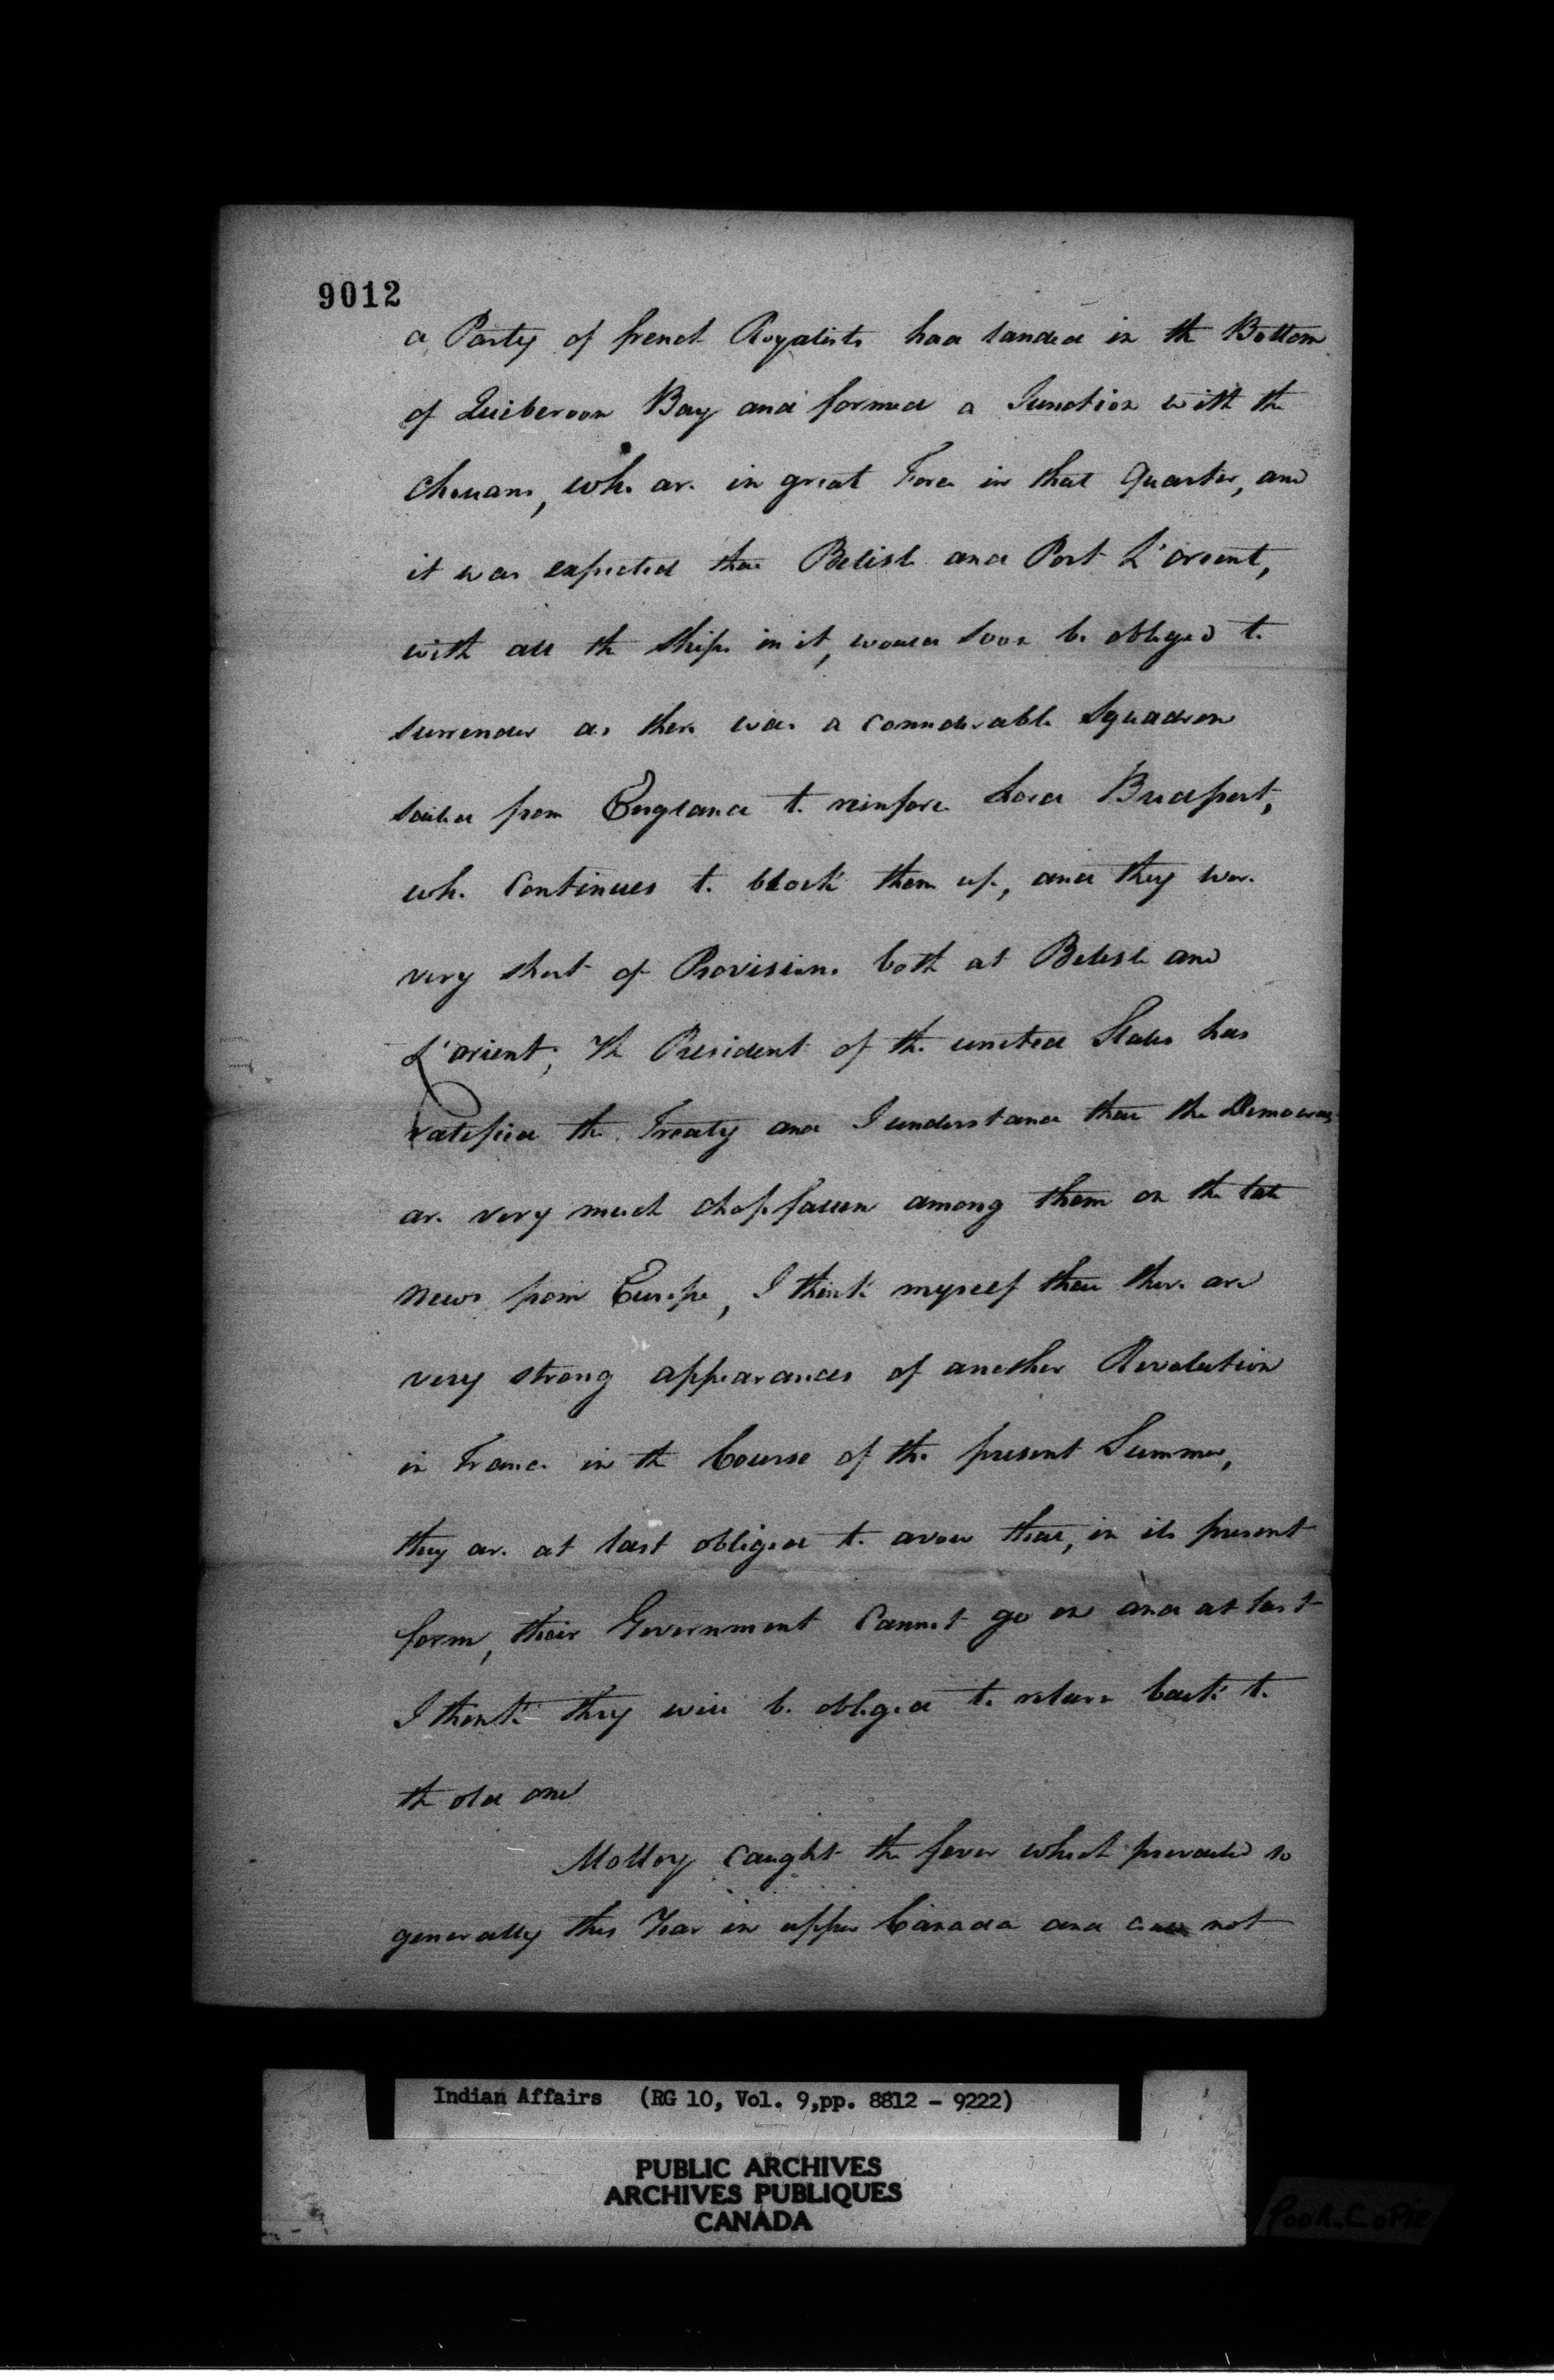 9012
a Party of french Royalists had landed in the Bottom
of Quiberoon Bay and formed a Junction with the
Chouans, who are in great Force in that Quarter, and
it was expected that Belisle and Port L'orient,
with all the Ships in it, would soon be obliged to
surrender as there was a considerable Squadron
sailed from England to reinforce Lord Bridport,
who Continues to block them up, and they were
very short of Provisions both at Belisle and
L'orient; The President of the united States has
ratified the Treaty and I understand that the Democrats
are very much Chopfallen among them on the late
news from Europe, I think myself that there are
very strong appearances of another Revolution
in France in the Course of the present Summer,
they are at last obliged to avow that, in its present
form, their Government Cannot go on and at last
I think they will be obliged to return back to
the old one
Molloy Caught the fever which prevailed so
generally this Year in upper Canada and not
Indian Affairs (RG 10, Vol. 9,pp. 8812 - 9222)
PUBLIC ARCHIVES
ARCHIVES PUBLIQUES
CANADA
Poor.Copie